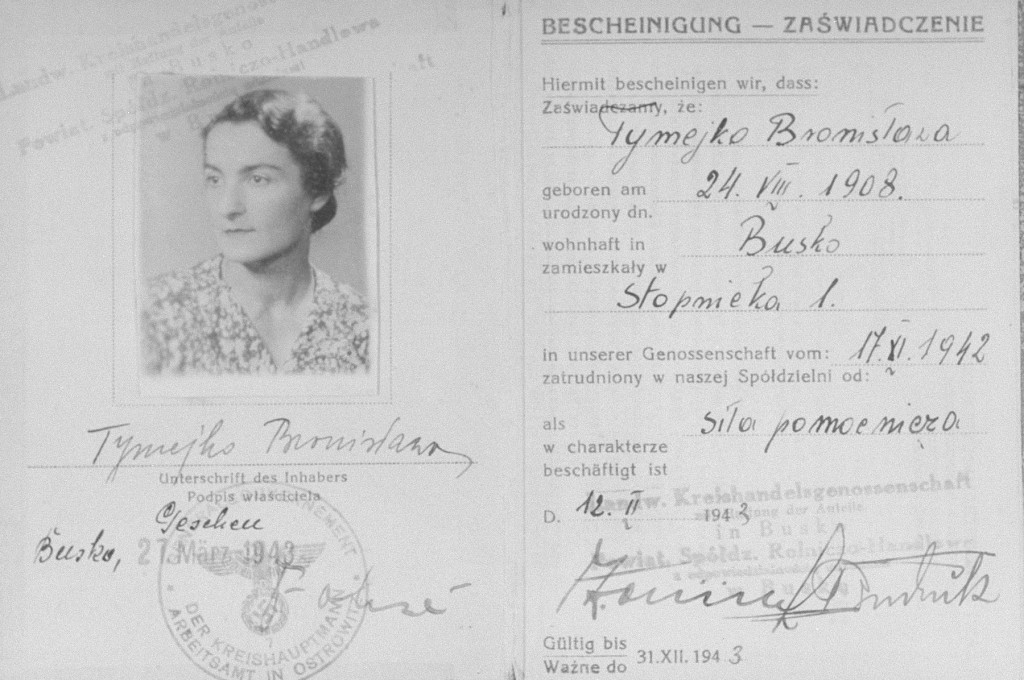 Landw. Kreishandelsgenossenschaft
in Busko
Powiat. Spółdz. Rolniczo-Handlowa
Tymejko Bronisława
Unterschrift des Inhabers
Podpis właściciela
Gesehen
Busko, 27. März 1943
DER KREISHAUPTMANN
ARBEITSAMT IN OSTROWITZ
BESCHEINIGUNG — ZAŚWIADCZENIE
Hiermit bescheinigen wir, dass:
Zaświadczamy, że:
Tymejko Bronisława
geboren am
24. VIII. 1908.
urodzony dn.
wohnhaft in
Busko
zamieszkały w
Stopnicka 1.
in unserer Genossenschaft vom: 17.XI.1942
zatrudniony w naszej Spółdzielni od:
als
siła pomocnicza
w charakterze
beschäftigt ist
Landw. Kreishandelsgenossenschaft
D. 12. II 1943
in Busko
Powiat. Spółdz. Rolniczo-Handlowa
Gültig bis
Ważne do 31.XII. 1943